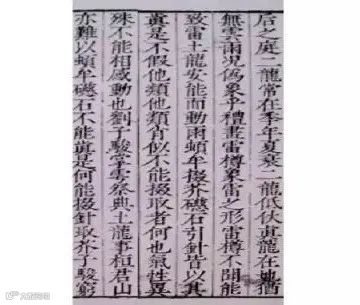 后之庭二龍常在季年夏衰二龍低伏眞龍在地猶
無雲雨況僞象乎禮畫雷樽象雷之形雷樽不聞能
致雷土龍安能而動雨頓牟掇芥磁石引針皆以其
眞是不假他類他類肖似不能掇取者何也氣性異
殊不能相感動也劉子駿掌雩祭典土龍事桓君山
亦難以頓牟磁石不能眞是何能掇針取芥子駿窮